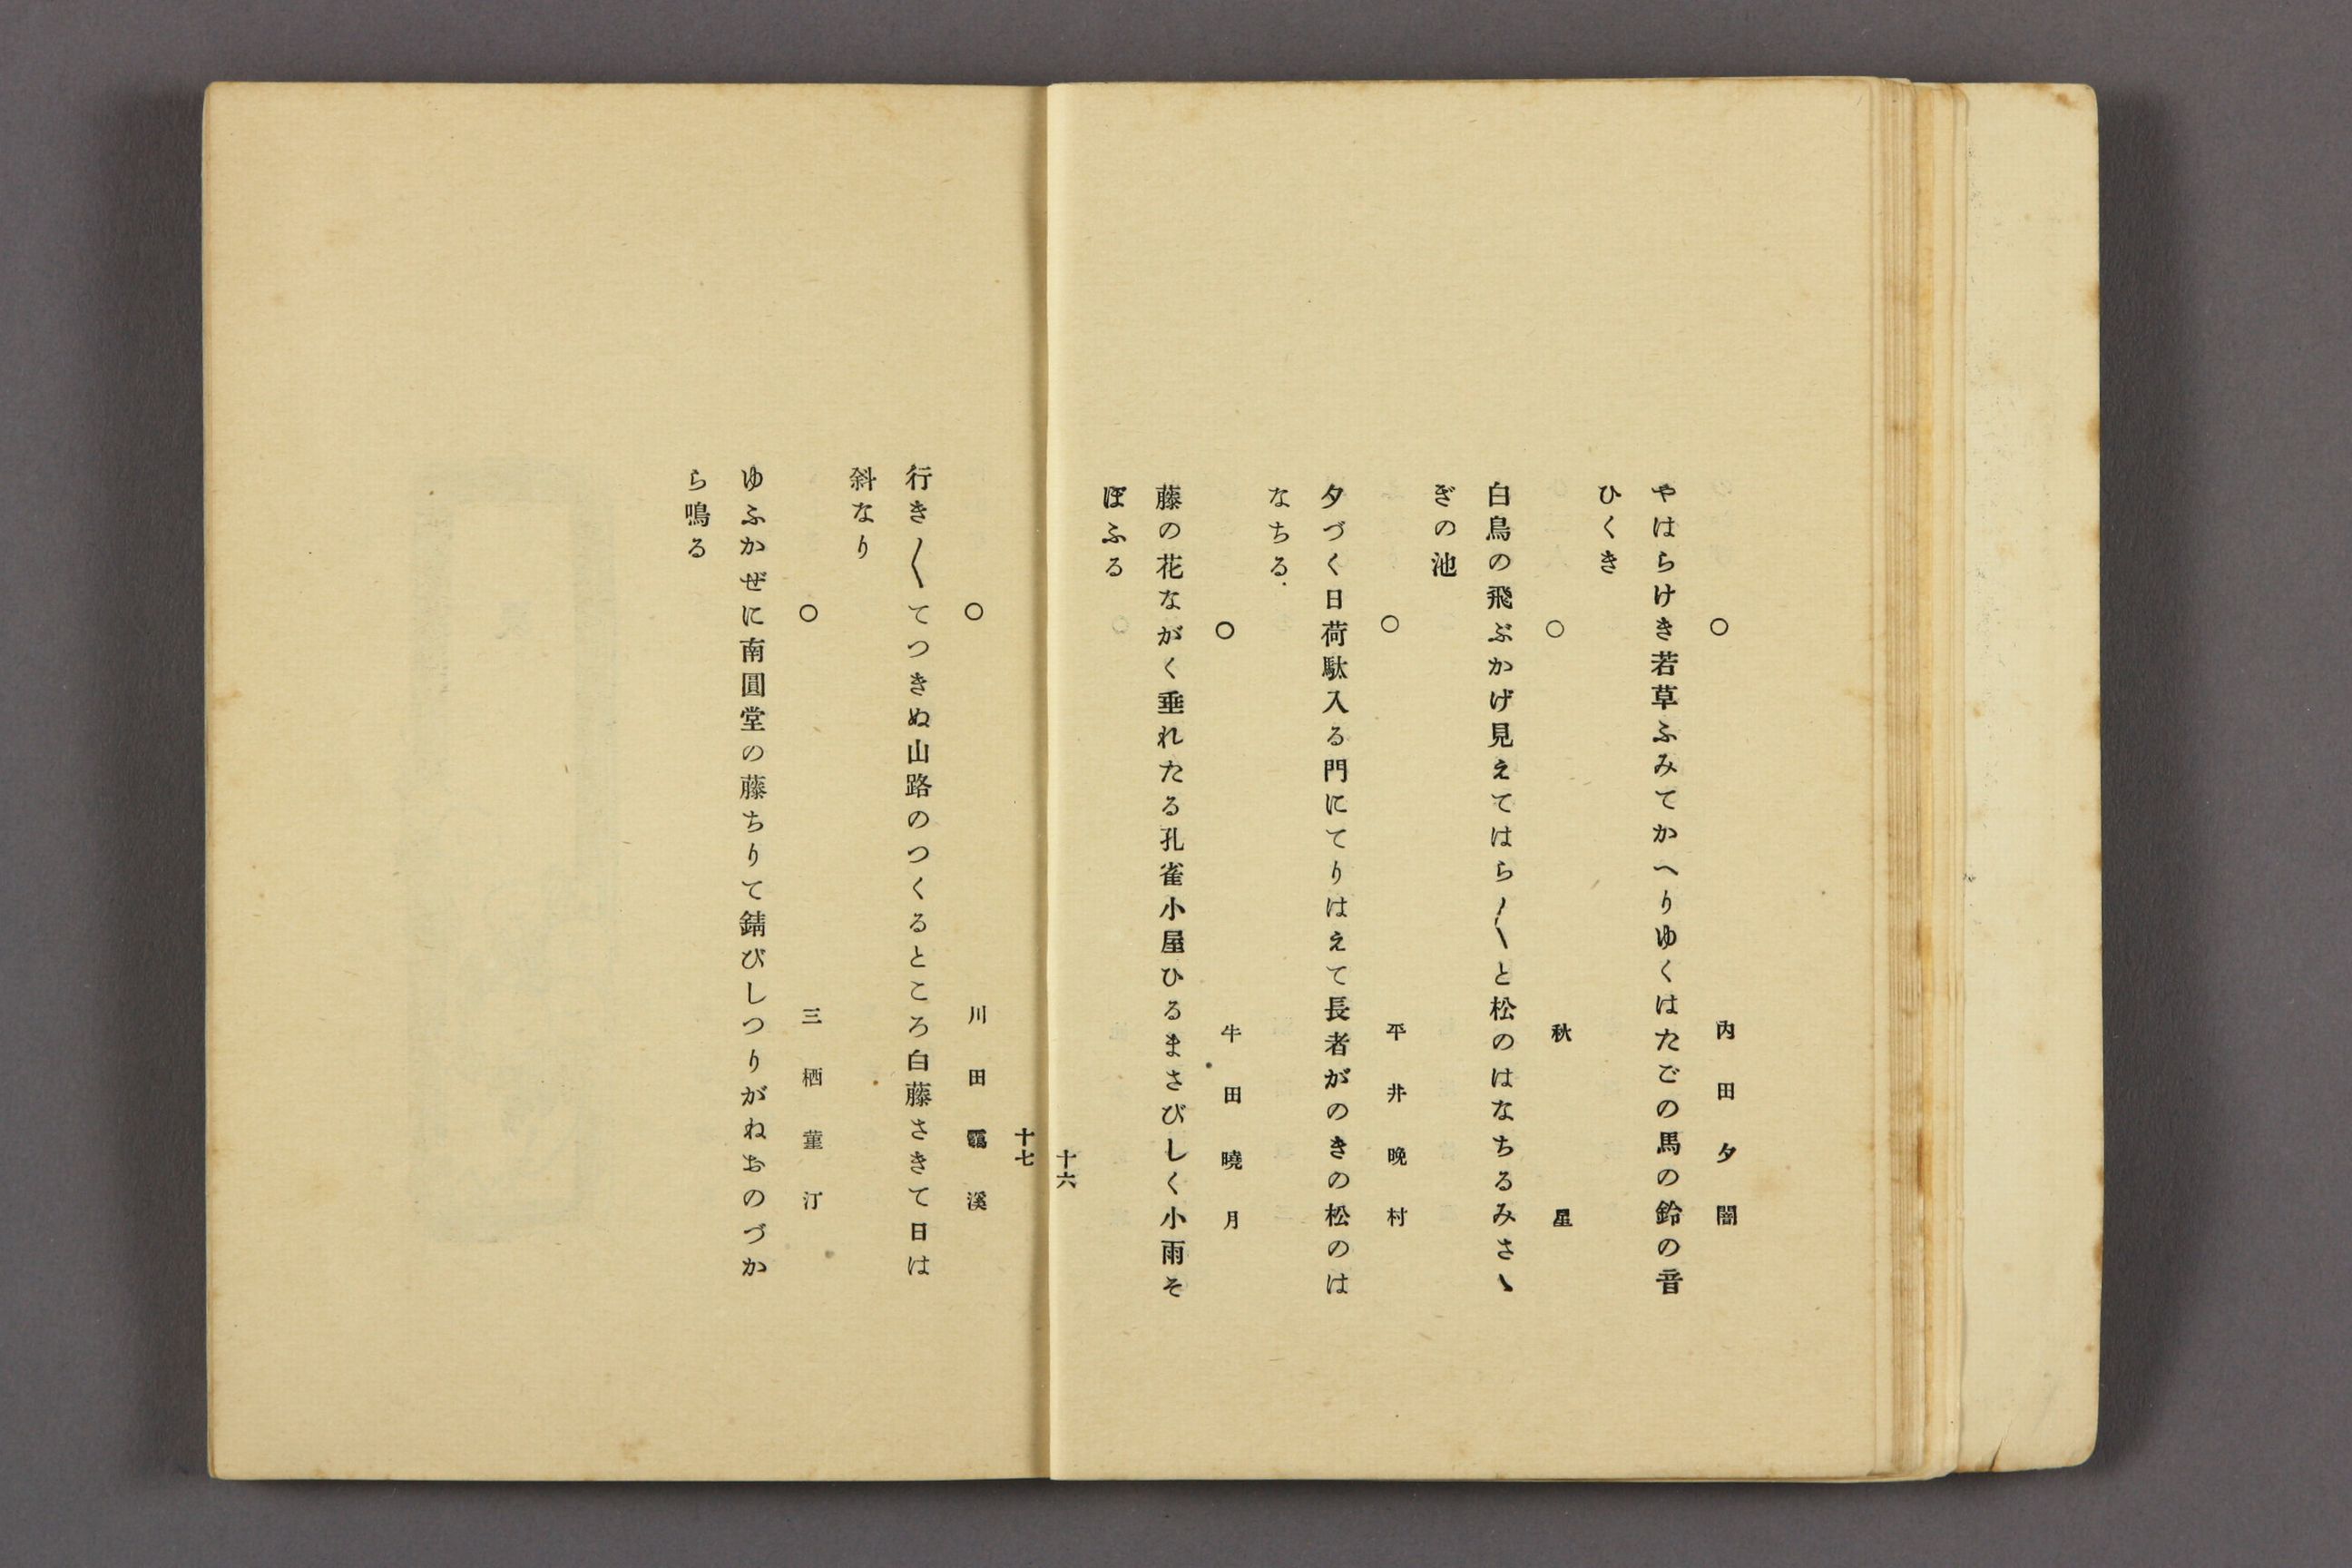 ○　内田夕闇
やはらけき若草ふみてかへりゆくはたごの馬の鈴の音
ひくき
○　秋星
白鳥の飛ぶかげ見えてはら〳〵と松のはなちるみさゝ
ぎの池
○　平井晩村
夕づく日荷駄入る門にてりはえて長者がのきの松のは
なちる
○　牛田曉月
藤の花ながく垂れたる孔雀小屋ひるまさびしく小雨そ
ぼふる
十六
十七
○　川田溪
行き〳〵てつきぬ山路のつくるところ白藤さきて日は
斜なり
○　三栖菫汀
ゆふかぜに南圓堂の藤ちりて錆びしつりがねおのづか
ら鳴る